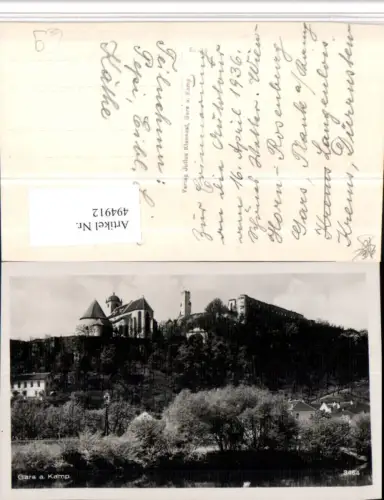 Zur Erinnerung
an die Autotour
am 16. April 1936.
Schönes Wetter. Wien-
Horn - Rosenburg
Gars, Plank a/Kamp
Krems Langenlois
Krems, Dürrnstein
Teilnehmer:
Pepi, Edtl. L.
Käthe
Verlag Julius Gars a. Kamp
Artikel Nr.
494912
Gars a. Kamp